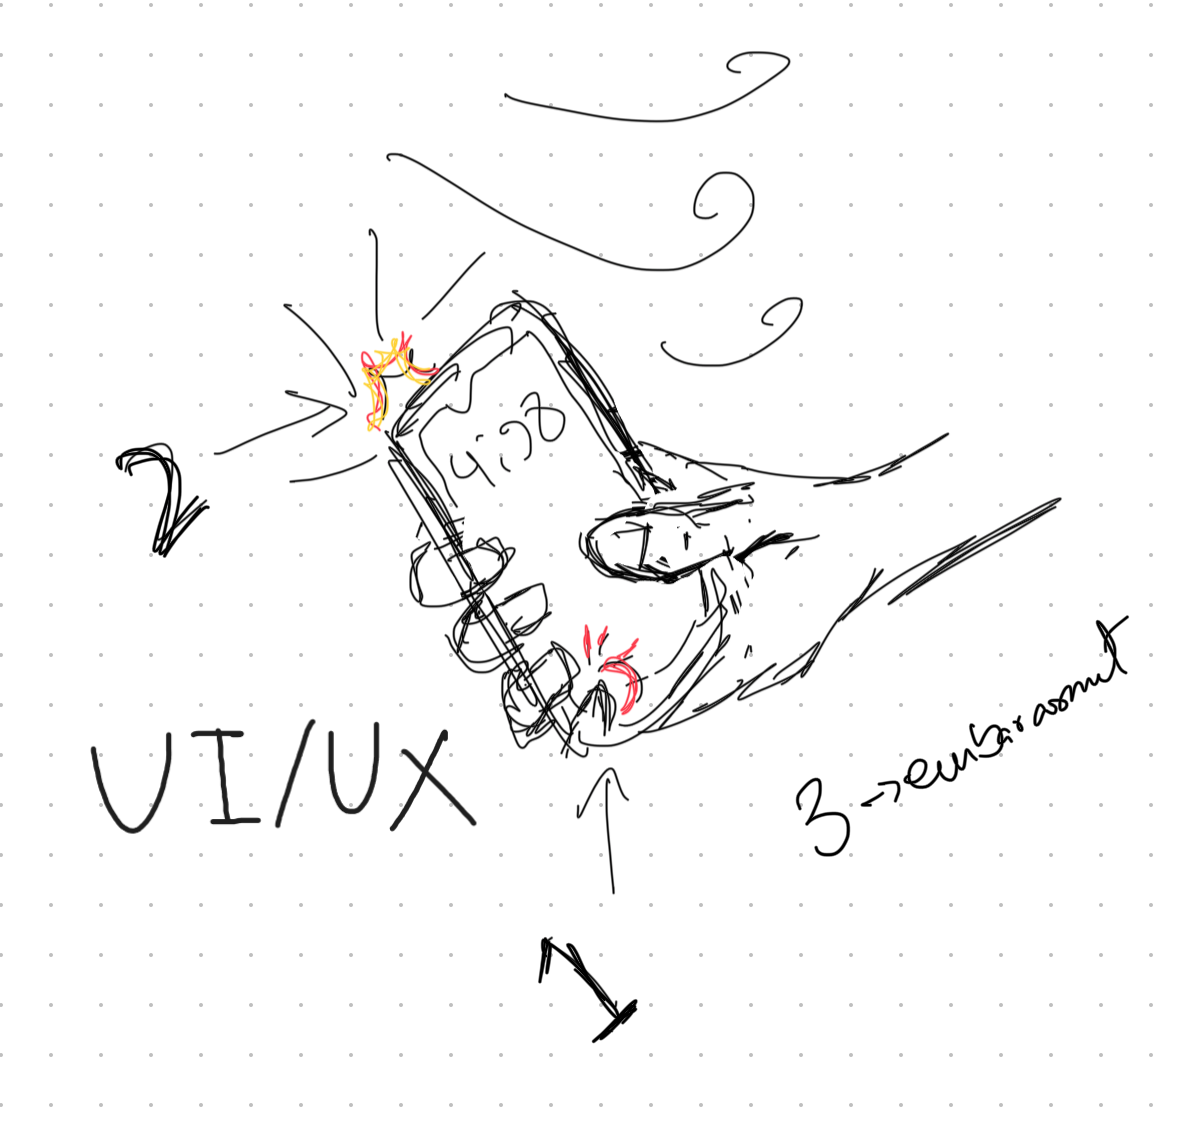 4:38
2
UI/UX
3 → embarasmnt
1